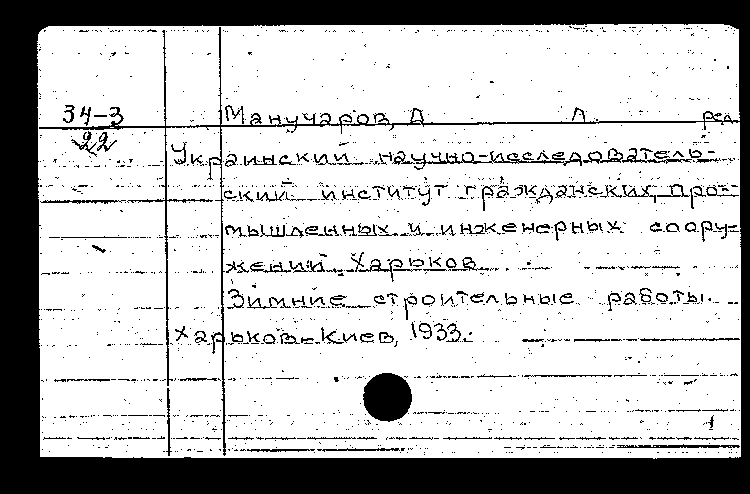 34-3
22
Манучаров, Д Л ред.
Украинский научно-исследователь-
ский институт гражданских, про-
мышленных и инженерных соору-
жений. Харьков
Зимние строительные работы.
Харьков-Киев, 1933.
1